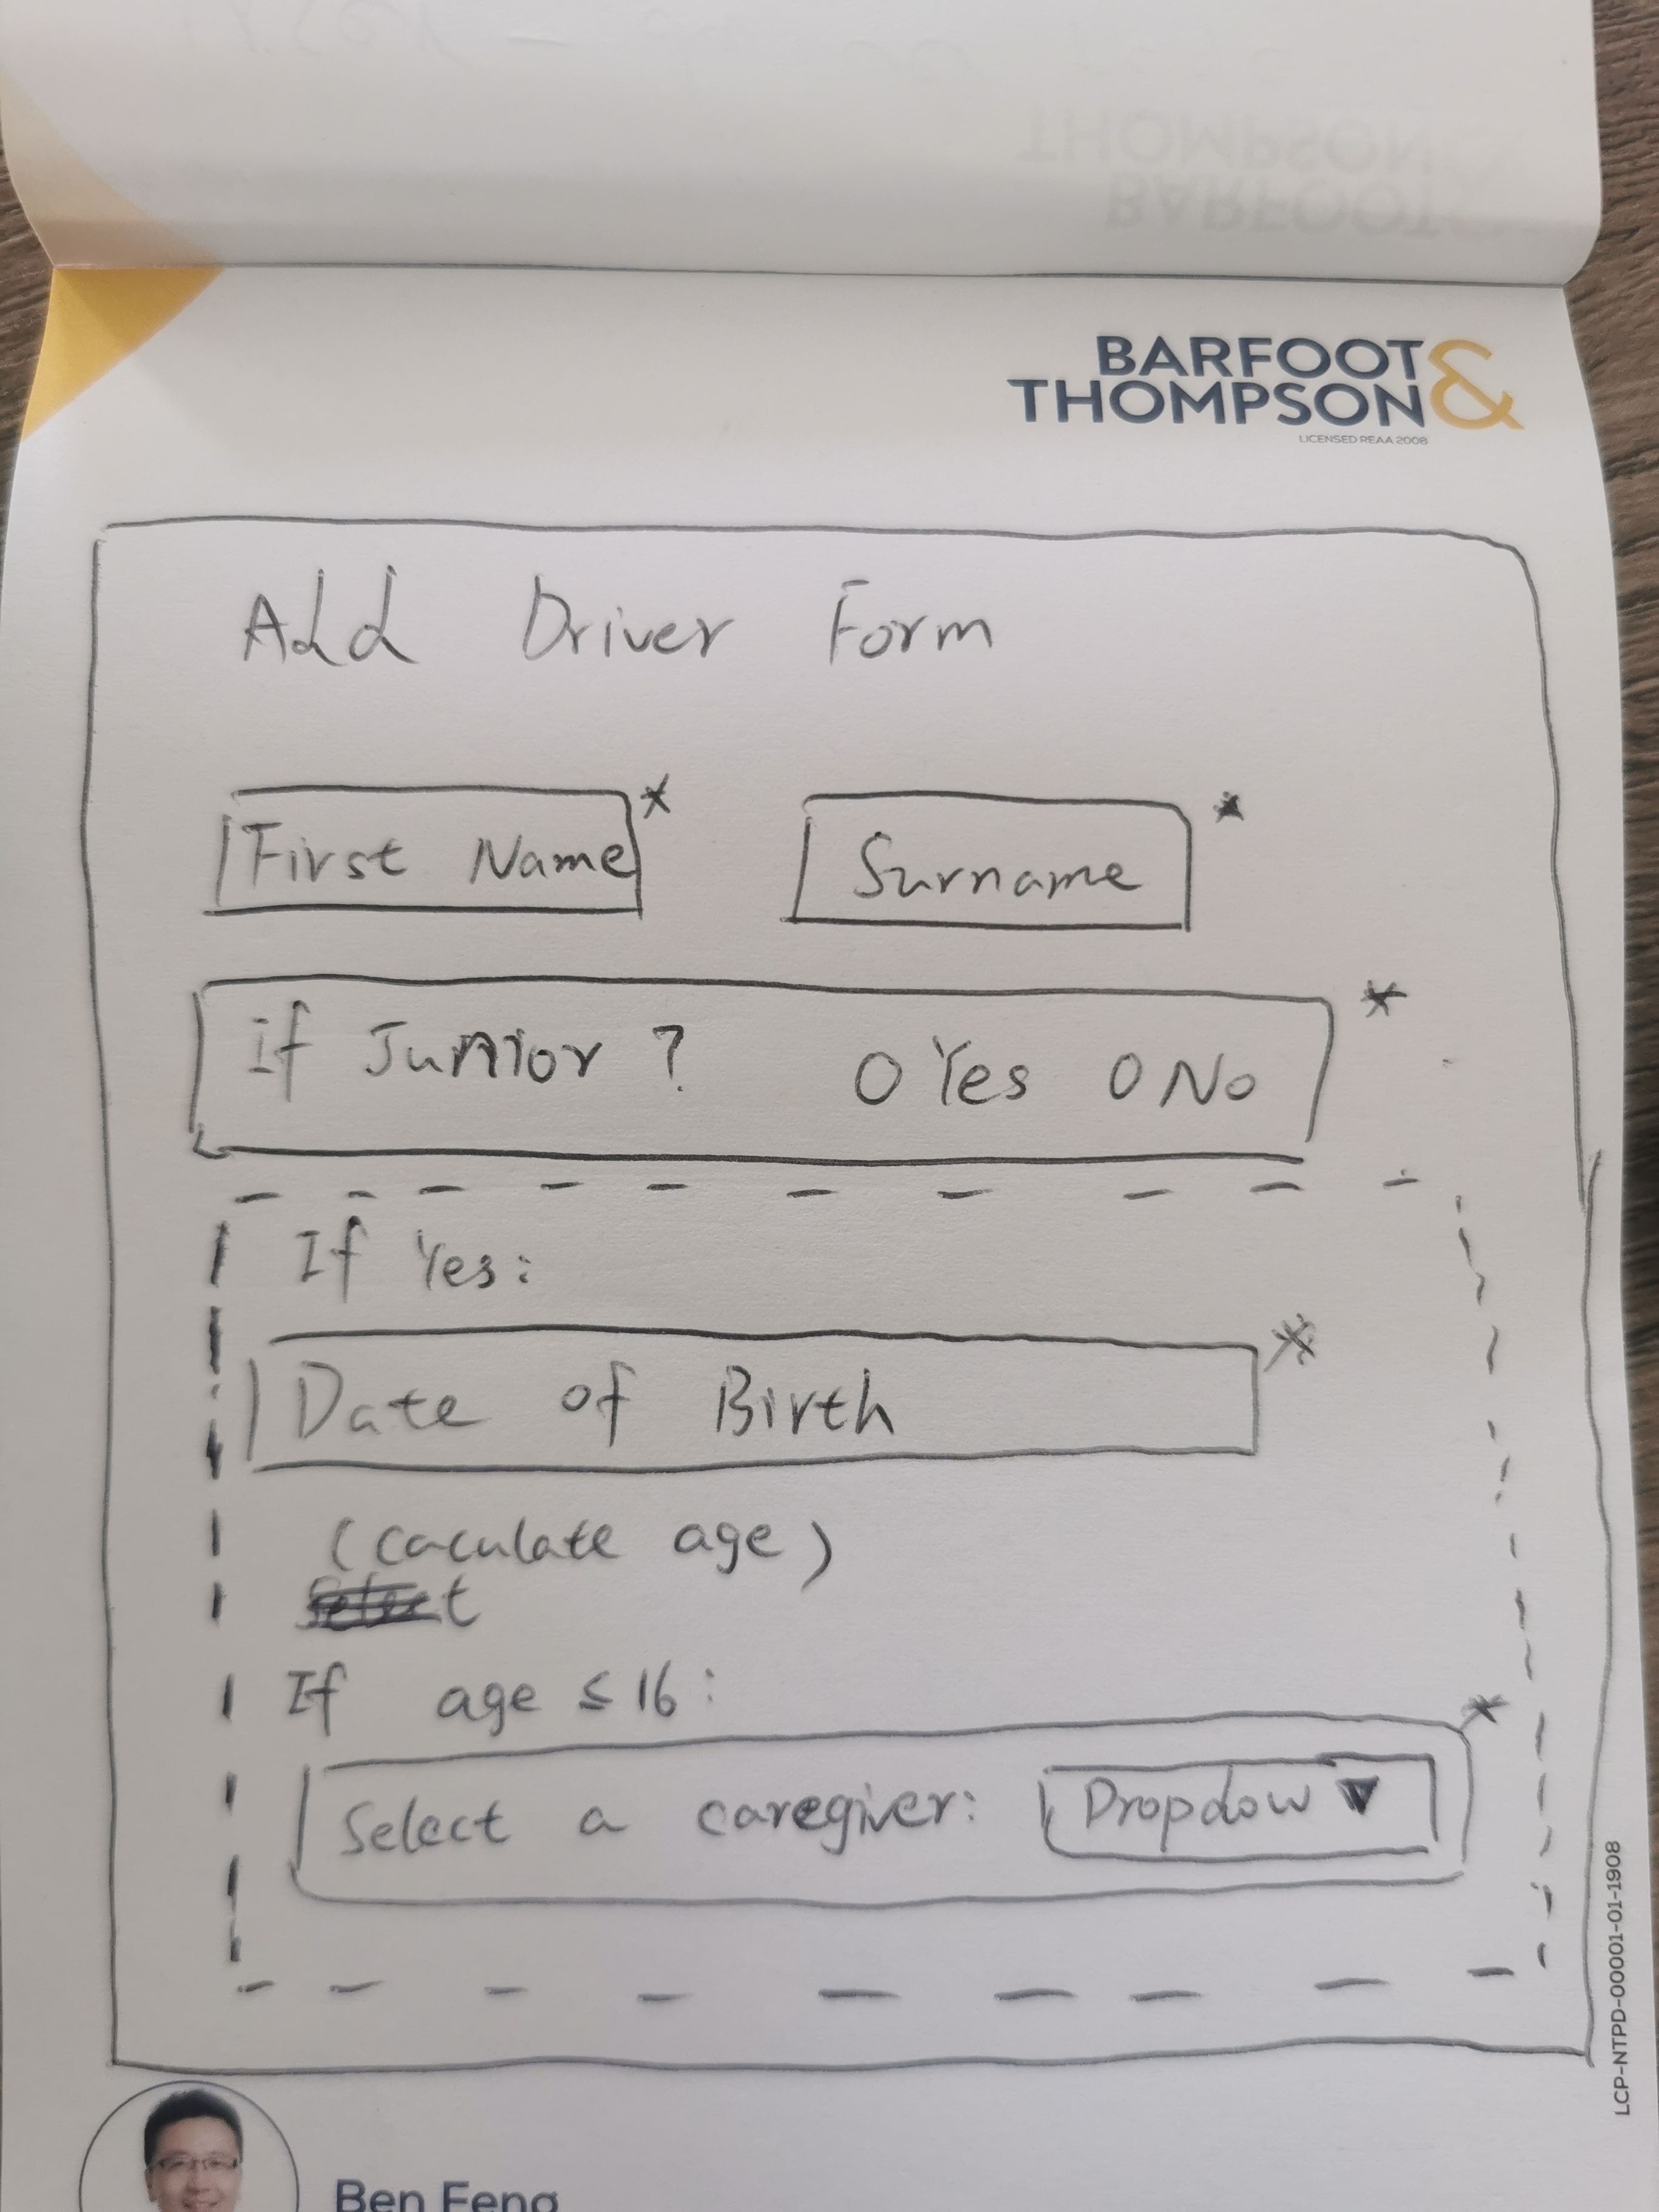 THOMPSON
BARFOOT
BARFOOT &
THOMPSON
LICENSED REAA 2008
Add Driver Form
First Name * Surname *
If Junior ? O Yes O No *
If Yes:
Date of Birth *
(caculate age)
If age ≤ 16:
Select a caregiver: Dropdow ▼ *
LCP-NTPD-00001-01-1908
Ben Feng